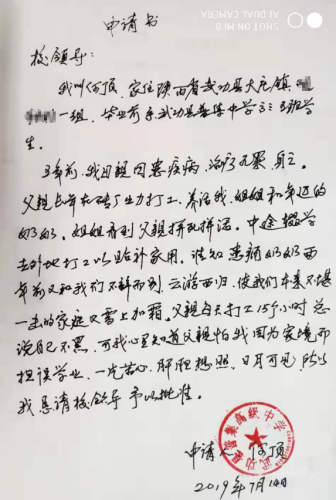 SHOT ON MI 8
AI DUAL CAMERA
申请书
校领导:
我叫何顶，家住陕西省武功县大庄镇
一组，毕业前系武功县普集中学高三3班学
生。
3年前，我母亲因患疾病，治疗无果，身亡。
父亲长年在砖厂出力打工，养活我、姐姐和年迈的
奶奶。姐姐看到父亲拼死拼活，中途辍学
去外地打工以贴补家用。谁知患病奶奶两
年前又和我们不辞而别，云游西归，使我们本来不堪
一击的家庭又雪上加霜。父亲每天打工15个小时总
说自己不累，可我心里知道父亲怕我因为家境而
担误学业，一片苦心，肝胆想照，日月可见，所以
我恳请校领导予以批准。
申请人 何顶
2019年7月14日
武功县普集高级中学